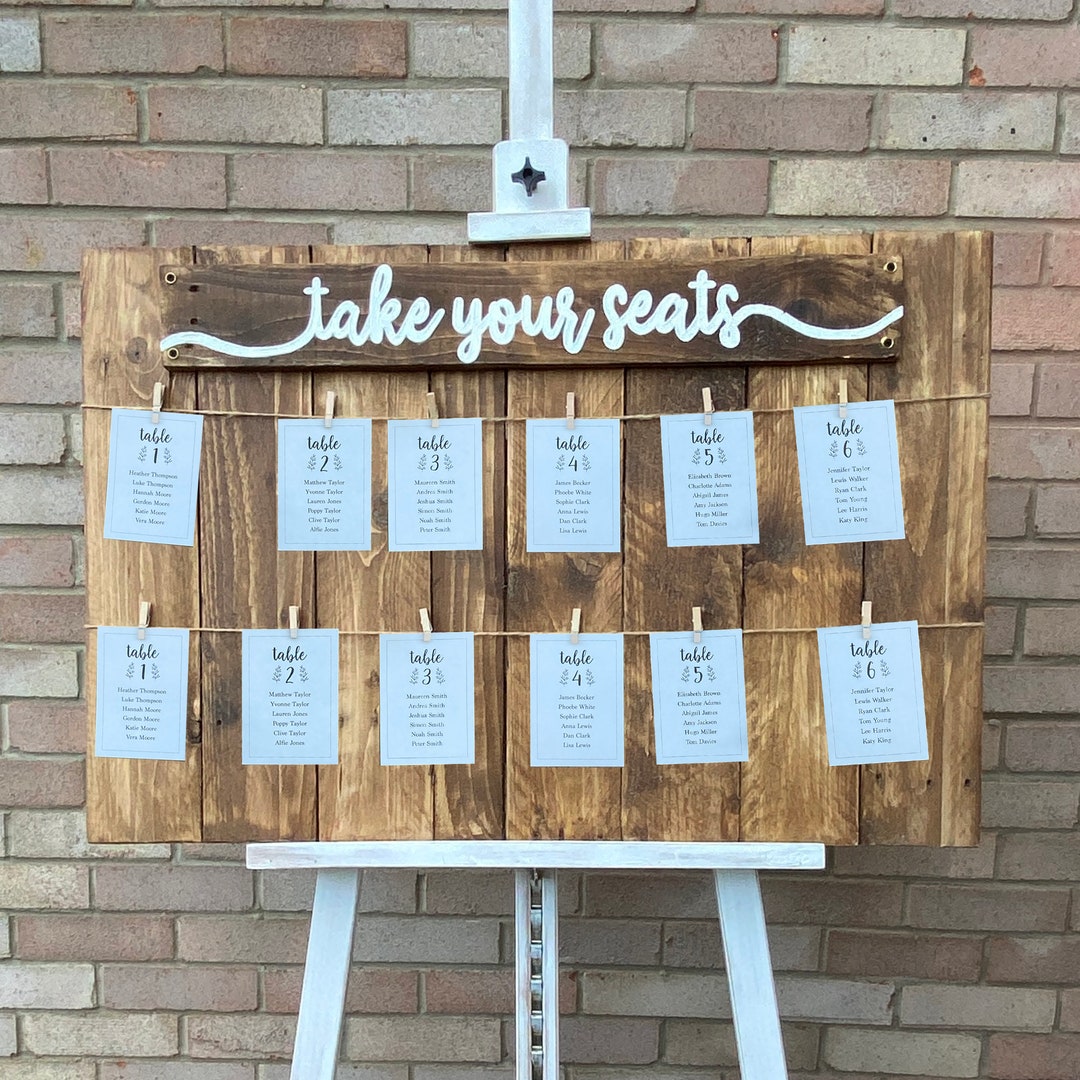 take your seats
table
1
Heather Thompson
Luke Thompson
Hannah Moore
Gordon Moore
Katie Moore
Vera Moore
table
2
Matthew Taylor
Yvonne Taylor
Lauren Jones
Poppy Taylor
Clive Taylor
Alfie Jones
table
3
Maureen Smith
Andrea Smith
Joshua Smith
Simon Smith
Noah Smith
Peter Smith
table
4
James Becker
Phoebe White
Sophie Clark
Anna Lewis
Dan Clark
Lisa Lewis
table
5
Elizabeth Brown
Charlotte Adams
Abigail James
Amy Jackson
Hugo Miller
Tom Davies
table
6
Jennifer Taylor
Lewis Walker
Ryan Clark
Tom Young
Lee Harris
Katy King
table
1
Heather Thompson
Luke Thompson
Hannah Moore
Gordon Moore
Katie Moore
Vera Moore
table
2
Matthew Taylor
Yvonne Taylor
Lauren Jones
Poppy Taylor
Clive Taylor
Alfie Jones
table
3
Maureen Smith
Andrea Smith
Joshua Smith
Simon Smith
Noah Smith
Peter Smith
table
4
James Becker
Phoebe White
Sophie Clark
Anna Lewis
Dan Clark
Lisa Lewis
table
5
Elizabeth Brown
Charlotte Adams
Abigail James
Amy Jackson
Hugo Miller
Tom Davies
table
6
Jennifer Taylor
Lewis Walker
Ryan Clark
Tom Young
Lee Harris
Katy King